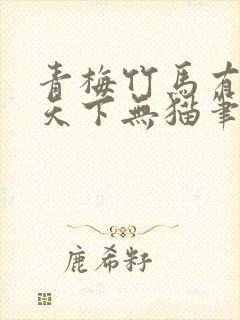 青梅竹馬有
天下無貓筆
鹿希籽